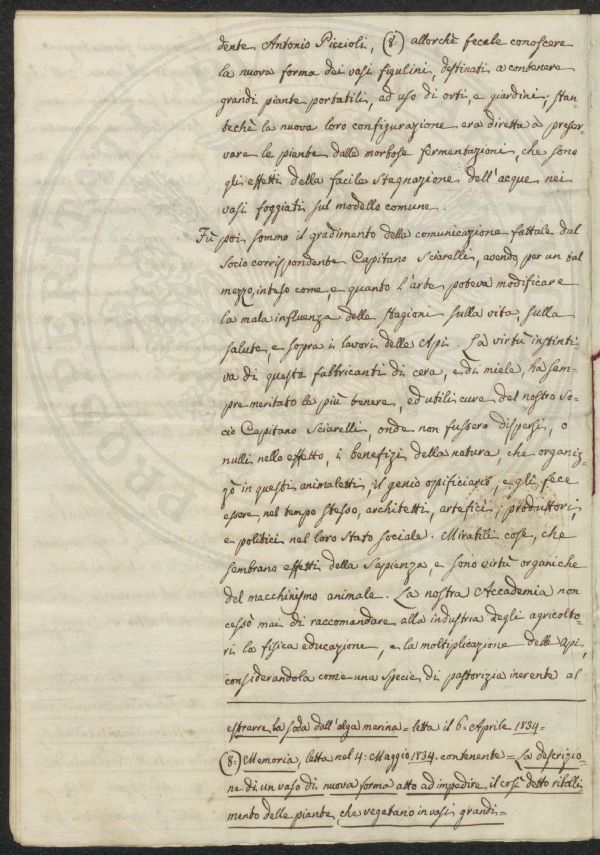 dente Antonio Piccioli, (8:) allorchè fecele conoscere
la nuova forma dei vasi figulini, destinati a contenere
grandi piante portatili, ad uso di orti, e giardini; stan-
techè la nuova loro configurazione era diretta a preser-
vare le piante dalle morbose fermentazioni, che sono
gli effetti della facile stagnazione dell'acque nei
vasi foggiati sul modello comune.
Fù poi sommo il gradimento della comunicazione fattale dal
Socio corrispondente Capitano Sciarelli, avendo per un tal
mezzo inteso come, e quanto l'arte poteva modificare
la mala influenza delle stagioni sulla vita, sulla
salute, e sopra i lavori delle Api. La virtù instinti-
va di questa fabbricanti di cera, e di miele, ha sem-
pre meritato le più tenere, ed utili cure del nostro So-
cio Capitano Sciarelli, onde non fussero dispersi, o
nulli nello effetto, i benefizi della natura, che organiz-
zò in questi animaletti, il genio opificiario, e gli fece
essere, nel tempo stesso, architetti, artefici, produttori,
e politici nel loro stato sociale. Mirabili cose, che
sembrano effetti della Sapienza, e sono virtù organiche
del macchinismo animale. La nostra Accademia non
cessò mai di raccomandare alla industria degli agricolto-
ri la fisica educazione, e la moltiplicazione delle Api,
considerandola come una specie di pastorizia inerente al
estrarre la soda dall'alga marina = letta il 6: Aprile 1834 =
(8:) Memoria, letta nel 4: Maggio 1834. contenente = La descrizio-
ne di un vaso di nuova forma atto ad impedire il così detto ribolli-
mento delle piante, che vegetano in vasi grandi =